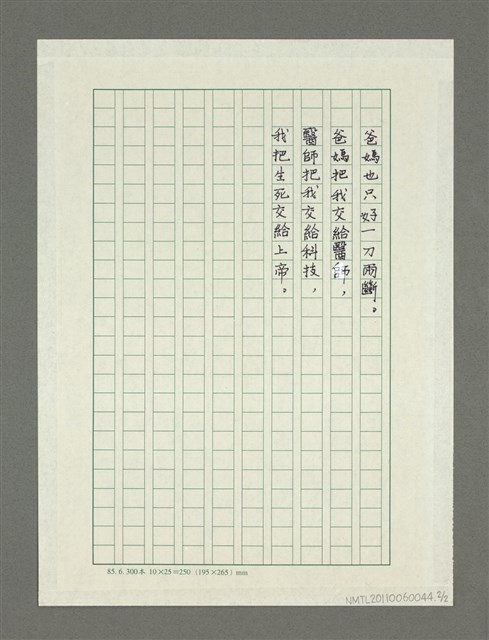 爸媽也只好一刀兩斷。
爸媽把我交給醫師，
醫師把我交給科技，
我把生死交給上帝。
85. 6. 300本 10×25=250 (195×265) mm
NMTL20110060044 2/2